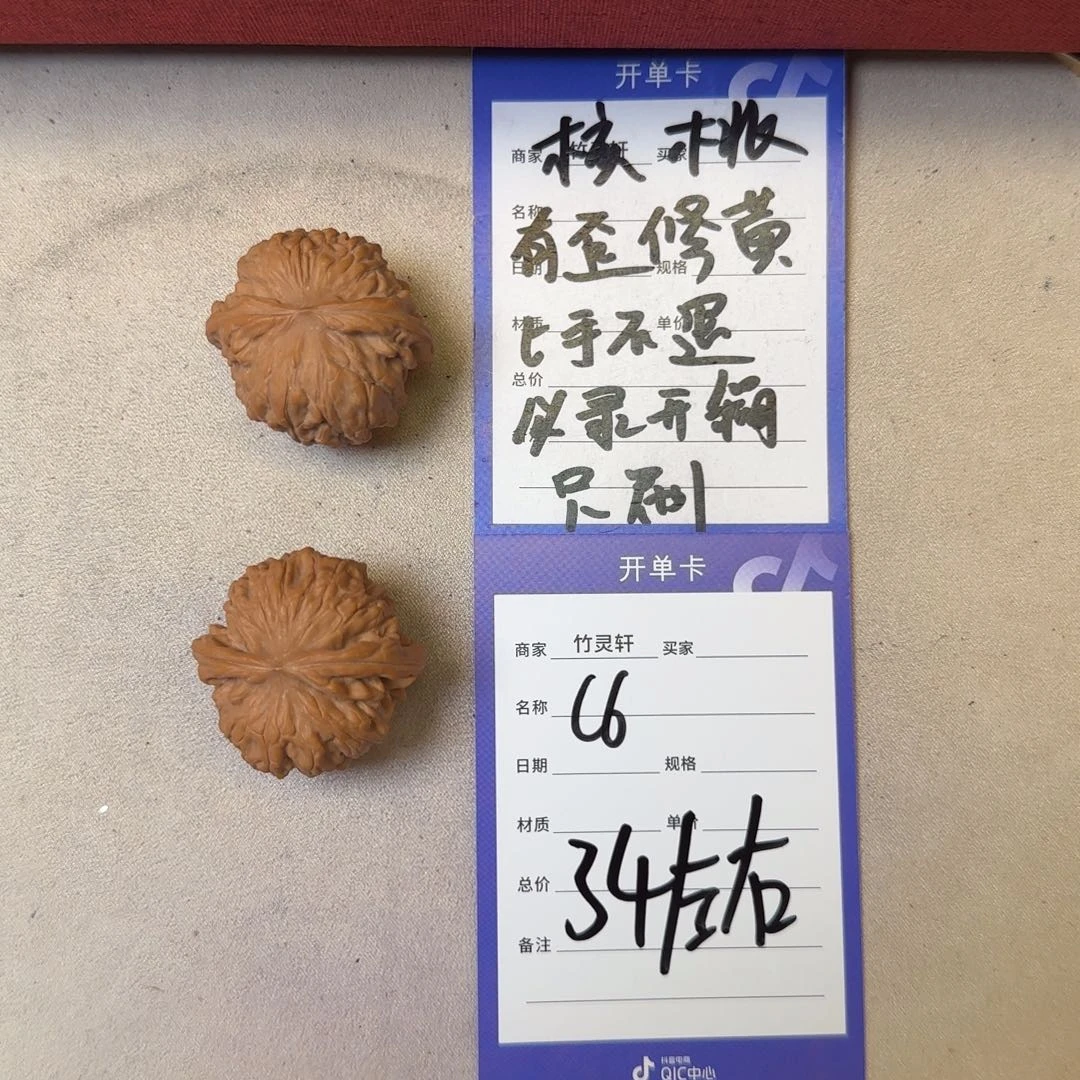 开单卡
核桃
商家 竹灵轩 买家
名称
有歪修黄
日期 规格
材质 单价
上手不退
总价
必录开箱
只刷
开单卡
商家 竹灵轩 买家
名称 C6
日期 规格
材质 单价
34左右
总价
备注
抖音电商
QIC中心